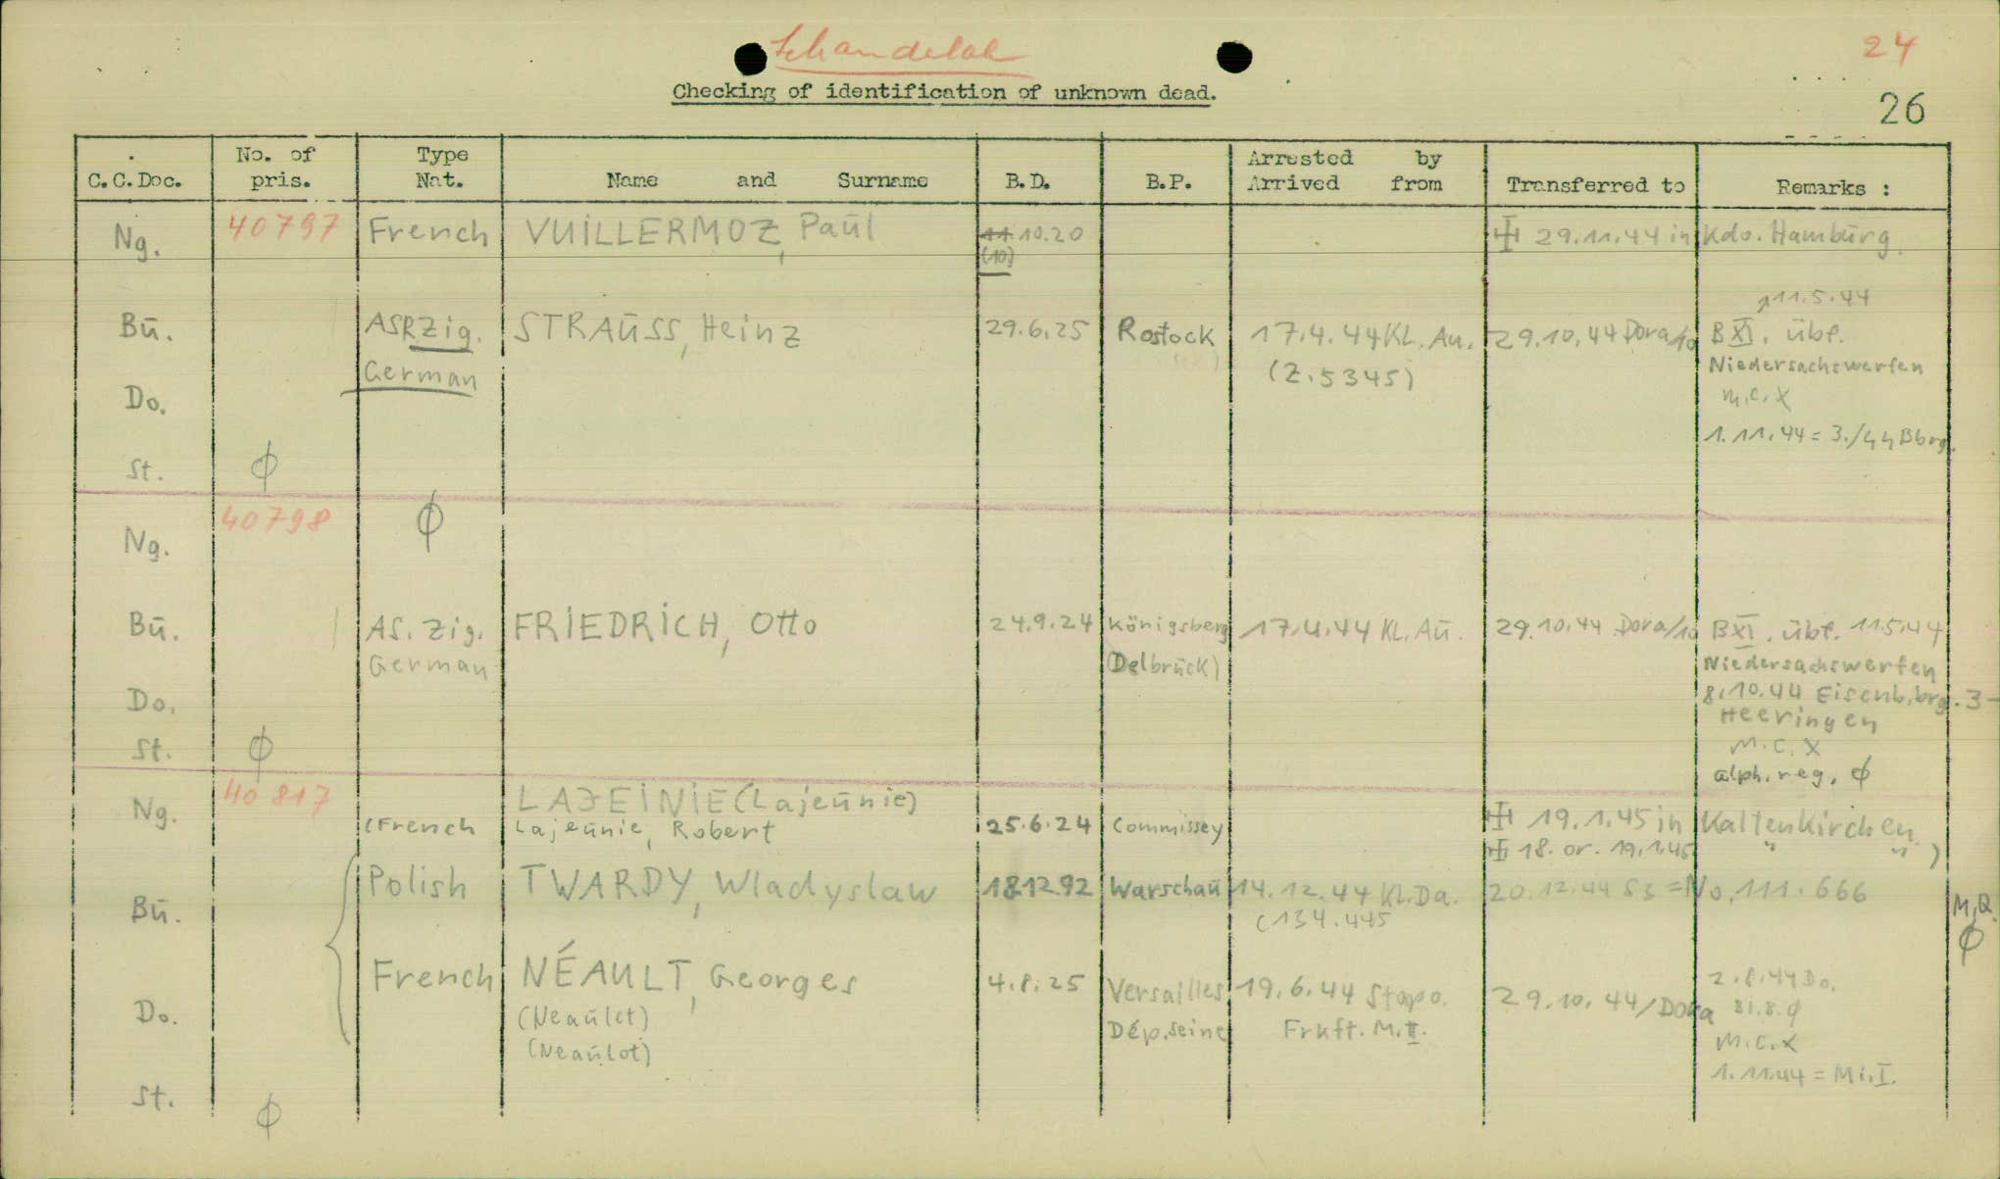 Schandelah
24
Checking of identification of unknown dead.
26
C.C.Doc. No. of pris. Type Nat. Name and Surname B.D. B.P. Arrested by Arrived from Transferred to Remarks :
Ng. 40797 French VUILLERMOZ, Paul 11.10.20 ✝ 29.11.44 in Kdo. Hamburg
(10)
11.5.44
Bu. ASR Zig. STRAUSS, Heinz 29.6.25 Rostock 17.4.44 KL. Au. 29.10.44 Dora/10 BXI. übf.
German (Z.5345) Niedersachswerfen
Do. m.c.X
1.11.44 = 3./44 Bbrg.
St. ϕ
Ng. 40798 ϕ
Bu. AS. Zig. FRIEDRICH, Otto 24.9.24 Königsberg 17.4.44 KL. Au. 29.10.44 Dora/10 BXI. übf. 11.5.44
German (Delbrück) Niedersachswerfen
Do. 8.10.44 Eisenb.brg.3-
Heeringen
St. ϕ m.c.X
alph.reg. ϕ
Ng. 40817 LAJEINIE (Lajeunie) ✝ 19.1.45 in Kaltenkirchen
(French Lajeunie, Robert 25.6.24 Commissey ✝ 18. or. 19.1.45 " " )
Bu. Polish TWARDY, Wladyslaw 18.12.92 Warschau 14.12.44 KL.Da. 20.12.44 S3 = No. 111.666 M.Q.
(134.445 ϕ
Do. French NÉAULT, Georges 4.8.25 Versailles 19.6.44 Stapo. 29.10.44/Dora 2.8.44 Do.
(Neaulet) Dép.Seine Frkft. M.II. 31.8.ϕ
(Neaulot) m.c.X
1.11.44 = Mi.I.
St. ϕ